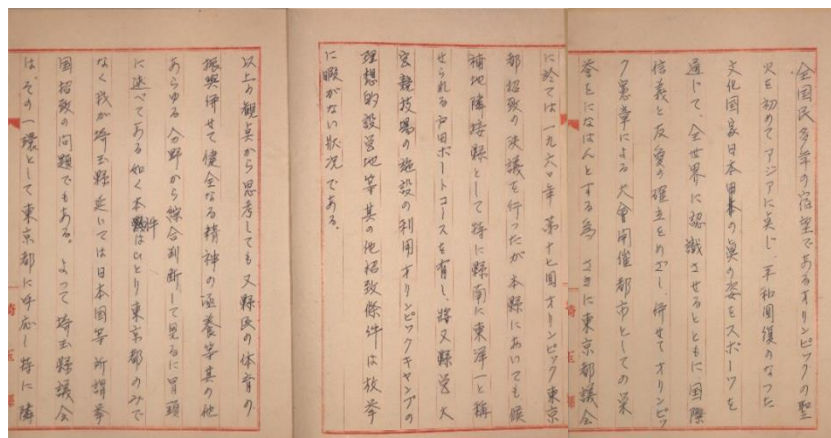 全国民多年の宿望であるオリンピックの聖
火を初めてアジアに点じ、平和回復のなつた
文化国家日本の眞の姿をスポーツを
通じて、全世界に認識させるとともに国際
信義と友愛の確立をめざし、併せてオリンピッ
ク憲章による大會開催都市としての栄
誉をになはんとする為、さきに東京都議会
に於ては一九六〇年第十七回オリンピック東京
都招致の決議を行つたが本縣においても候
補地隣接縣として特に縣南に東洋一と稱
せられる戸田ボートコースを有し、将又縣営大
宮競技場の施設の利用オリンピックキャンプの
理想的設営地等其の他招致條件は枚挙
に暇がない状況である。
以上の観点から思考しても又縣民の体育の
振興併せて健全なる精神の涵養等其の他
あらゆる分野から綜合判断して見るに冒頭
に述べてある如く本件はひとり東京都のみで
なく我が埼玉縣延いては日本国等所謂挙
国招致の問題でもある。よつて埼玉縣議会
は、その一環として東京都に呼応し特に隣
埼玉縣